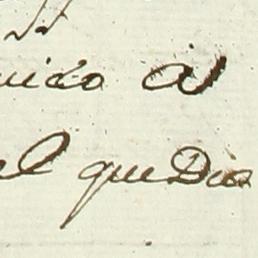 uido a
el que Dios